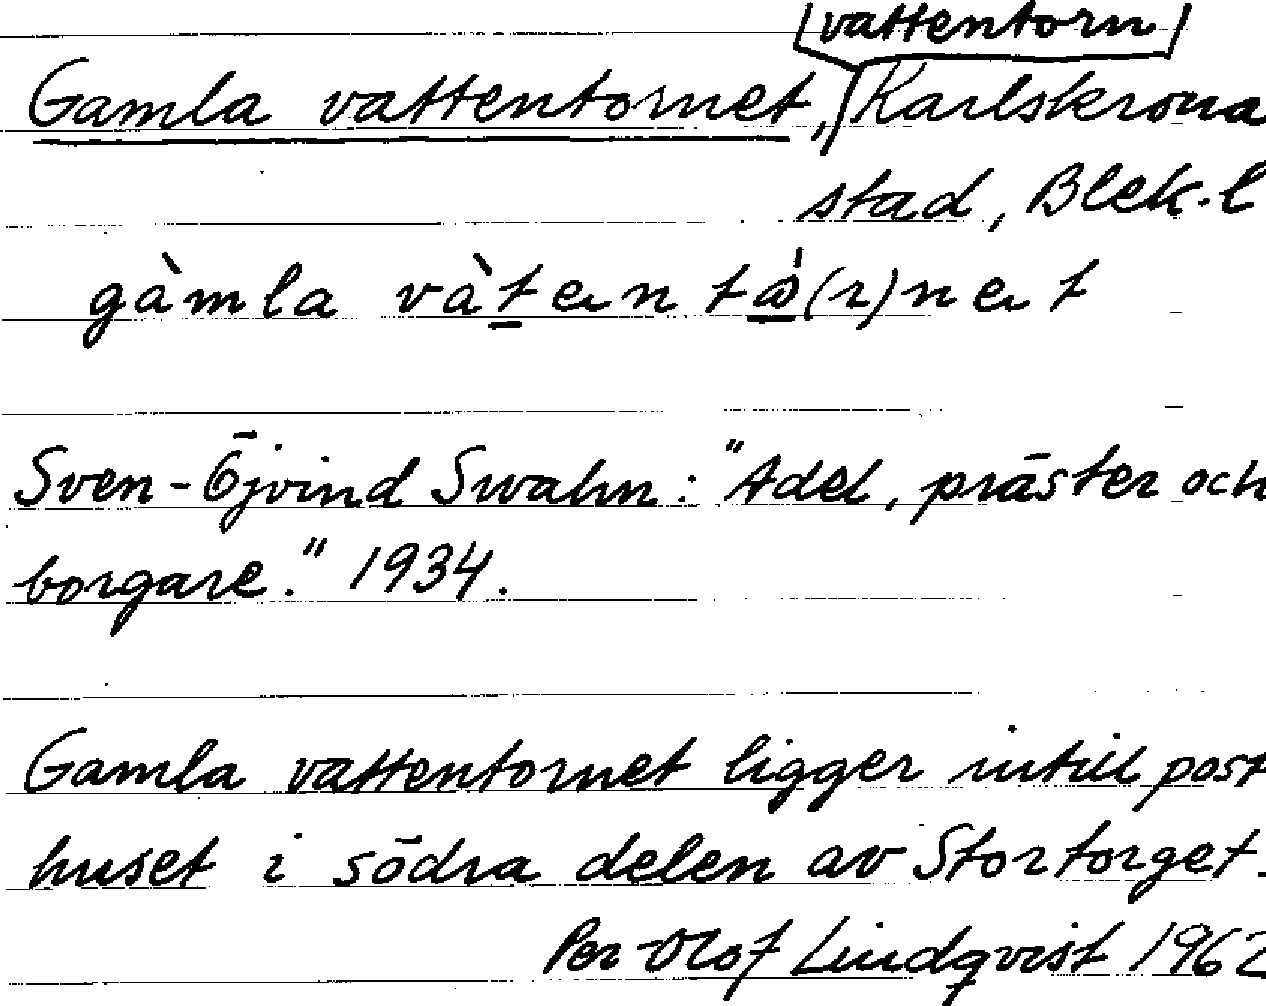 [vattentorn]
Gamla vattentornet, Karlskrona
stad, Blek. l
gàmla vàtentå(r)net
Sven-Öjvind Swahn: "Adel, präster och
borgare." 1934.
Gamla vattentornet ligger intill post
huset i södra delen av Stortorget.
Per-Olof Lindqvist 1962